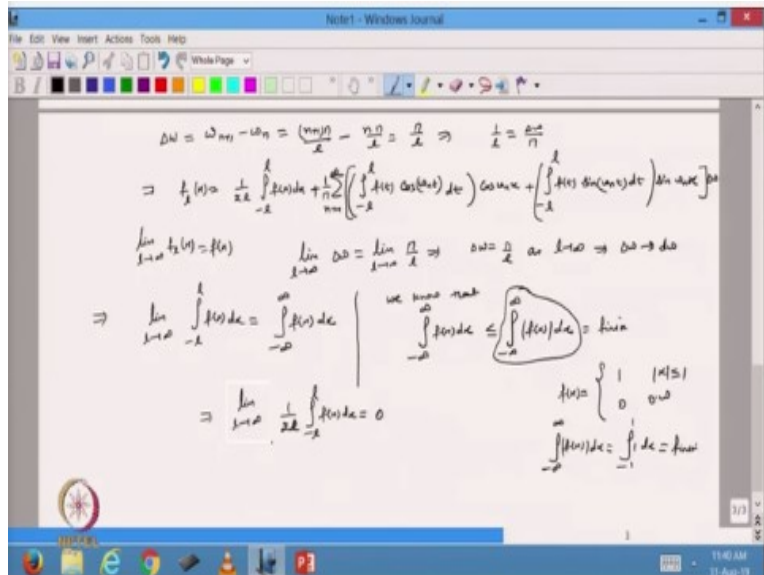 Note1 - Windows Journal
File Edit View Insert Actions Tools Help
Whole Page
B I
Δω = ω_{n+1} - ω_n = (n+1)π/l - nπ/l = π/l ⇒ 1/l = Δω/π
⇒ f_l(x) = 1/2l ∫_{-l}^{l} f(x) dx + 1/π ∑_{n=1}^{∞} [(∫_{-l}^{l} f(t) cos(ω_n t) dt) cos ω_n x + (∫_{-l}^{l} f(t) sin(ω_n t) dt) sin ω_n x] Δω
lim_{l→∞} f_l(x) = f(x) lim_{l→∞} Δω = lim_{l→∞} π/l ⇒ Δω = π/l as l→∞ ⇒ Δω → dω
⇒ lim_{l→∞} ∫_{-l}^{l} f(x) dx = ∫_{-∞}^{∞} f(x) dx
we know that
∫_{-∞}^{∞} f(x) dx ≤ ∫_{-∞}^{∞} |f(x)| dx = finite
f(x) = { 1 |x| ≤ 1
0 o.w
⇒ lim_{l→∞} 1/2l ∫_{-l}^{l} f(x) dx = 0
∫_{-∞}^{∞} |f(x)| dx = ∫_{-1}^{1} 1 dx = finite
NPTEL
3/3
11:40 AM
11-Aug-19